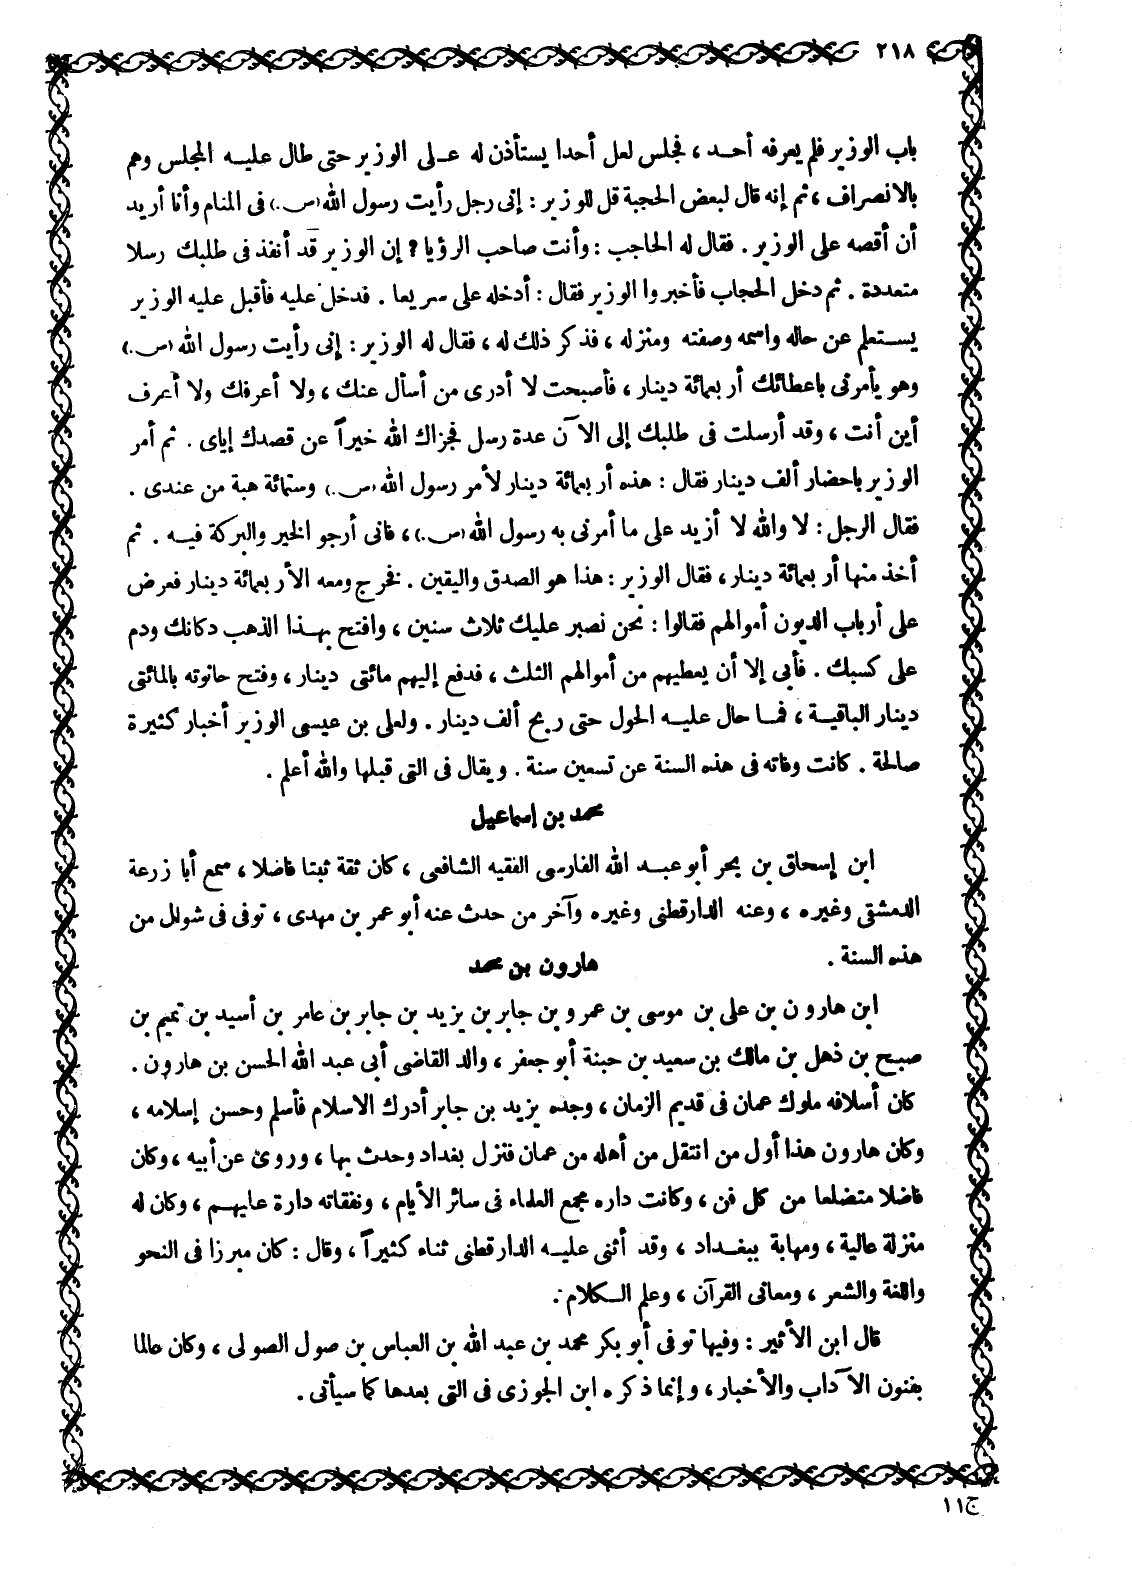 ٢١٨
باب الوزير فلم يعرفه أحد ، فجلس لعل أحدا يستأذن له على الوزير حتى طال عليه المجلس وهم
بالانصراف ، ثم إنه قال لبعض الحجبة قل للوزير : إنى رجل رأيت رسول الله (ص.) فى المنام وأنا أريد
أن أقصه على الوزير . فقال له الحاجب : وأنت صاحب الرؤيا ؟ إن الوزير قد أنفذ فى طلبك رسلا
متعددة . ثم دخل الحجاب فأخبروا الوزير فقال : أدخله على سريعا . فدخل عليه فأقبل عليه الوزير
يستعلم عن حاله واسمه وصفته ومنزله ، فذكر ذلك له ، فقال له الوزير : إنى رأيت رسول الله (ص.)
وهو يأمرنى باعطائك أربعمائة دينار ، فأصبحت لا أدرى من أسأل عنك ، ولا أعرفك ولا أعرف
أين أنت ، وقد أرسلت فى طلبك إلى الآن عدة رسل فجزاك الله خيراً عن قصدك إياى . ثم أمر
الوزير باحضار ألف دينار فقال : هذه أربعمائة دينار لأمر رسول الله (ص.) وستمائة هبة من عندى .
فقال الرجل : لا والله لا أزيد على ما أمرنى به رسول الله (ص.) ، فانى أرجو الخير والبركة فيه . ثم
أخذ منها أربعمائة دينار ، فقال الوزير : هذا هو الصدق واليقين . فخرج ومعه الأربعمائة دينار فعرض
على أرباب الديون أموالهم فقالوا : نحن نصبر عليك ثلاث سنين ، وافتح بهذا الذهب دكانك ودم
على كسبك . فأبى إلا أن يعطيهم من أموالهم الثلث ، فدفع إليهم مائتى دينار ، وفتح حانوته بالمائتى
دينار الباقية ، فما حال عليه الحول حتى ربح ألف دينار . ولعلى بن عيسى الوزير أخبار كثيرة
صالحة . كانت وفاته فى هذه السنة عن تسعين سنة . ويقال فى التى قبلها والله أعلم .
محمد بن إسماعيل
ابن إسحاق بن بحر أبو عبد الله الفارسى الفقيه الشافعى ، كان ثقة ثبتا فاضلا ، سمع أبا زرعة
الدمشقى وغيره ، وعنه الدارقطنى وغيره وآخر من حدث عنه أبو عمر بن مهدى ، توفى فى شوال من
هذه السنة .
هارون بن محمد
ابن هارون بن على بن موسى بن عمرو بن جابر بن يزيد بن جابر بن عامر بن أسيد بن تميم بن
صبح بن ذهل بن مالك بن سعيد بن حبنة أبو جعفر ، والد القاضى أبى عبد الله الحسن بن هارون .
كان أسلافه ملوك عمان فى قديم الزمان ، وجده يزيد بن جابر أدرك الاسلام فأسلم وحسن إسلامه ،
وكان هارون هذا أول من انتقل من أهله من عمان فنزل بغداد وحدث بها ، وروى عن أبيه ، وكان
فاضلا متضلعا من كل فن ، وكانت داره مجمع العلماء فى سائر الأيام ، ونفقاته دارة عليهم ، وكان له
منزلة عالية ، ومهابة ببغداد ، وقد أثنى عليه الدارقطنى ثناء كثيراً ، وقال : كان مبرزا فى النحو
واللغة والشعر ، ومعانى القرآن ، وعلم الكلام .
قال ابن الأثير : وفيها توفى أبو بكر محمد بن عبد الله بن العباس بن صول الصولى ، وكان عالما
بفنون الآداب والأخبار ، وإنما ذكره ابن الجوزى فى التى بعدها كما سيأتى .
ج١١